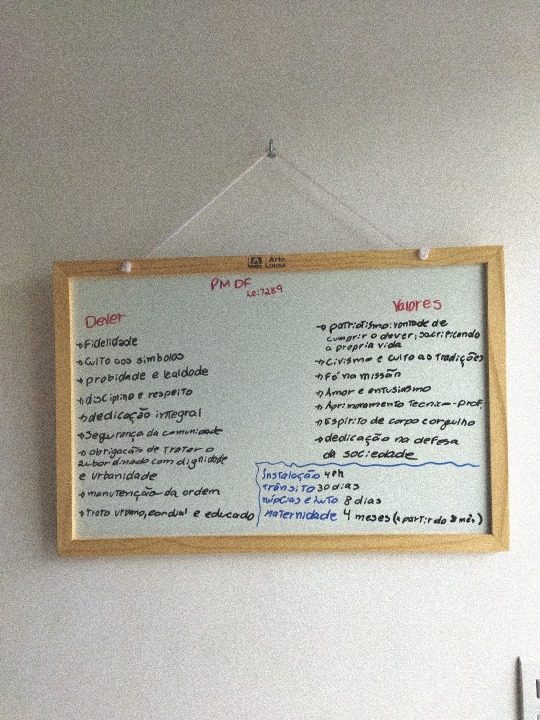 Arte Lousa
PMDF
Lei 7289
Dever
→ Fidelidade
→ Culto aos simbolos
→ probidade e lealdade
→ disciplina e respeito
→ dedicação integral
→ Segurança da comunidade
→ obrigação de Tratar o
subordinado com dignidade
e urbanidade
→ manutenção da ordem
→ Trato urbano, cordial e educado
Valores
→ patriotismo: vontade de
cumprir o dever, sacrificando
a propria vida
→ Civismo e culto as Tradições
→ Fé na missão
→ Amor e entusiasmo
→ Aprimoramento Tecnico-prof.
→ Espirito de corpo e orgulho
→ dedicação na defesa
da sociedade
Instalação 48h
Trânsito 30 dias
núpcias e luto 8 dias
maternidade 4 meses (a partir do 8 mês)